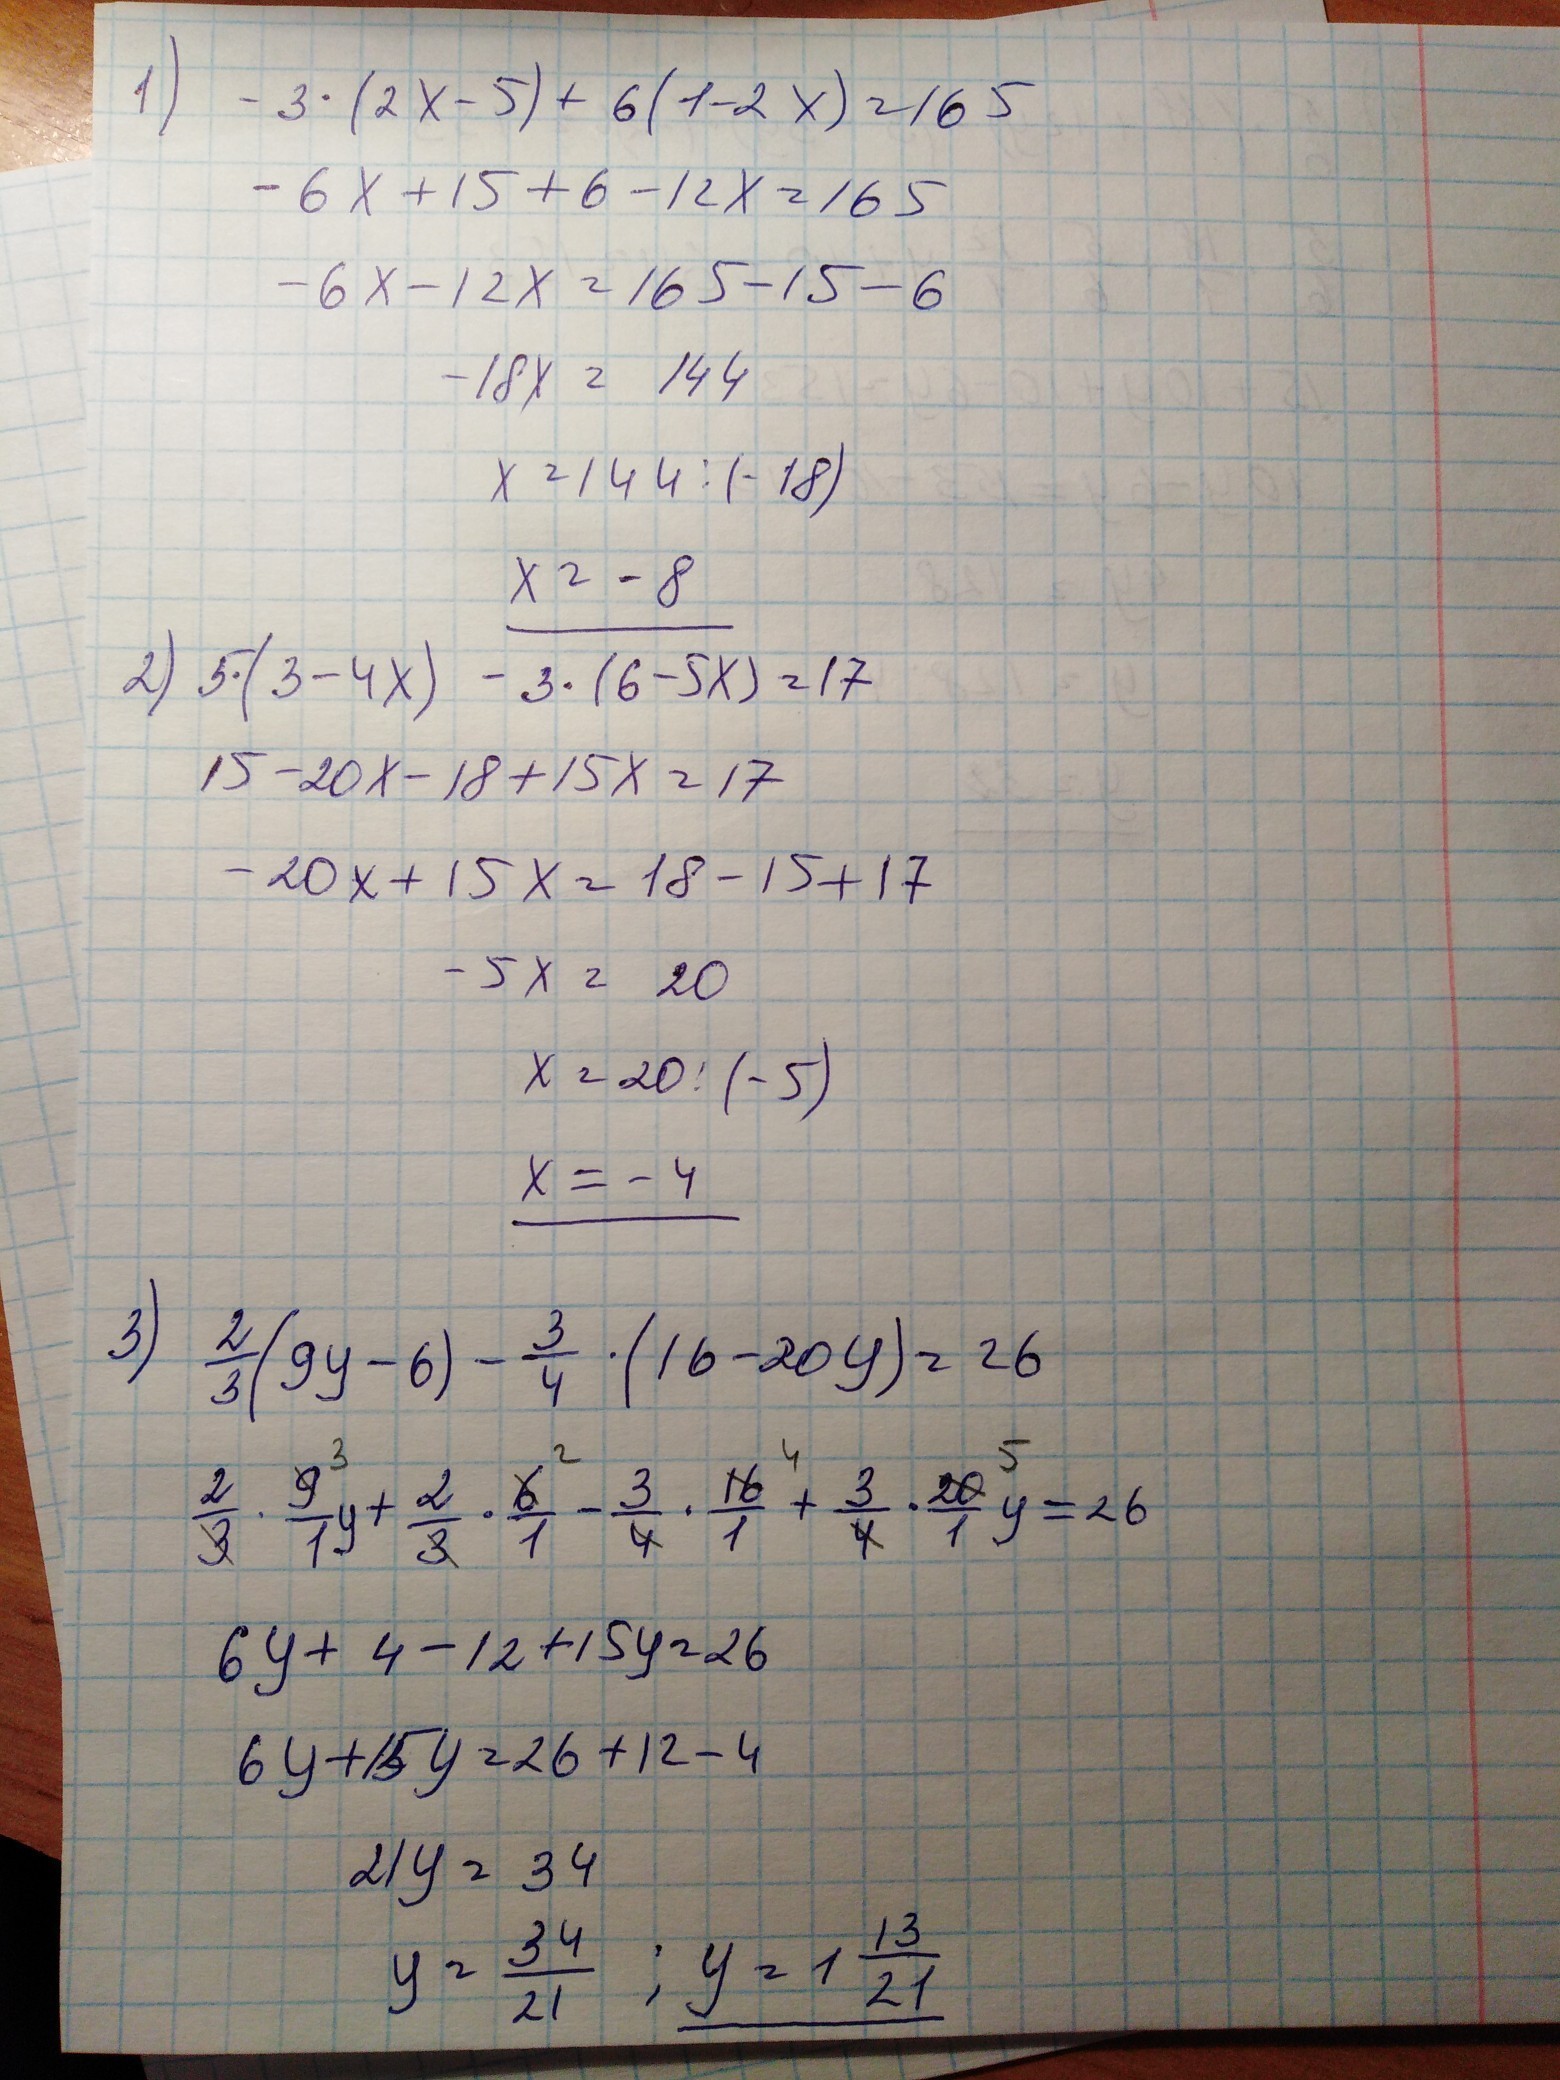 1) -3·(2x-5)+6(1-2x)=165
-6x+15+6-12x=165
-6x-12x=165-15-6
-18x=144
x=144:(-18)
x=-8
2) 5·(3-4x)-3·(6-5x)=17
15-20x-18+15x=17
-20x+15x=18-15+17
-5x=20
x=20:(-5)
x=-4
3) 2/3(9y-6)-3/4·(16-20y)=26
3 2 4 5
2/3·9/1y+2/3·6/1-3/4·16/1+3/4·20/1y=26
6y+4-12+15y=26
6y+15y=26+12-4
21y=34
y=34/21; y=1 13/21